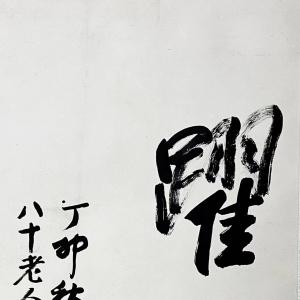 躍
丁卯秋
八十老人